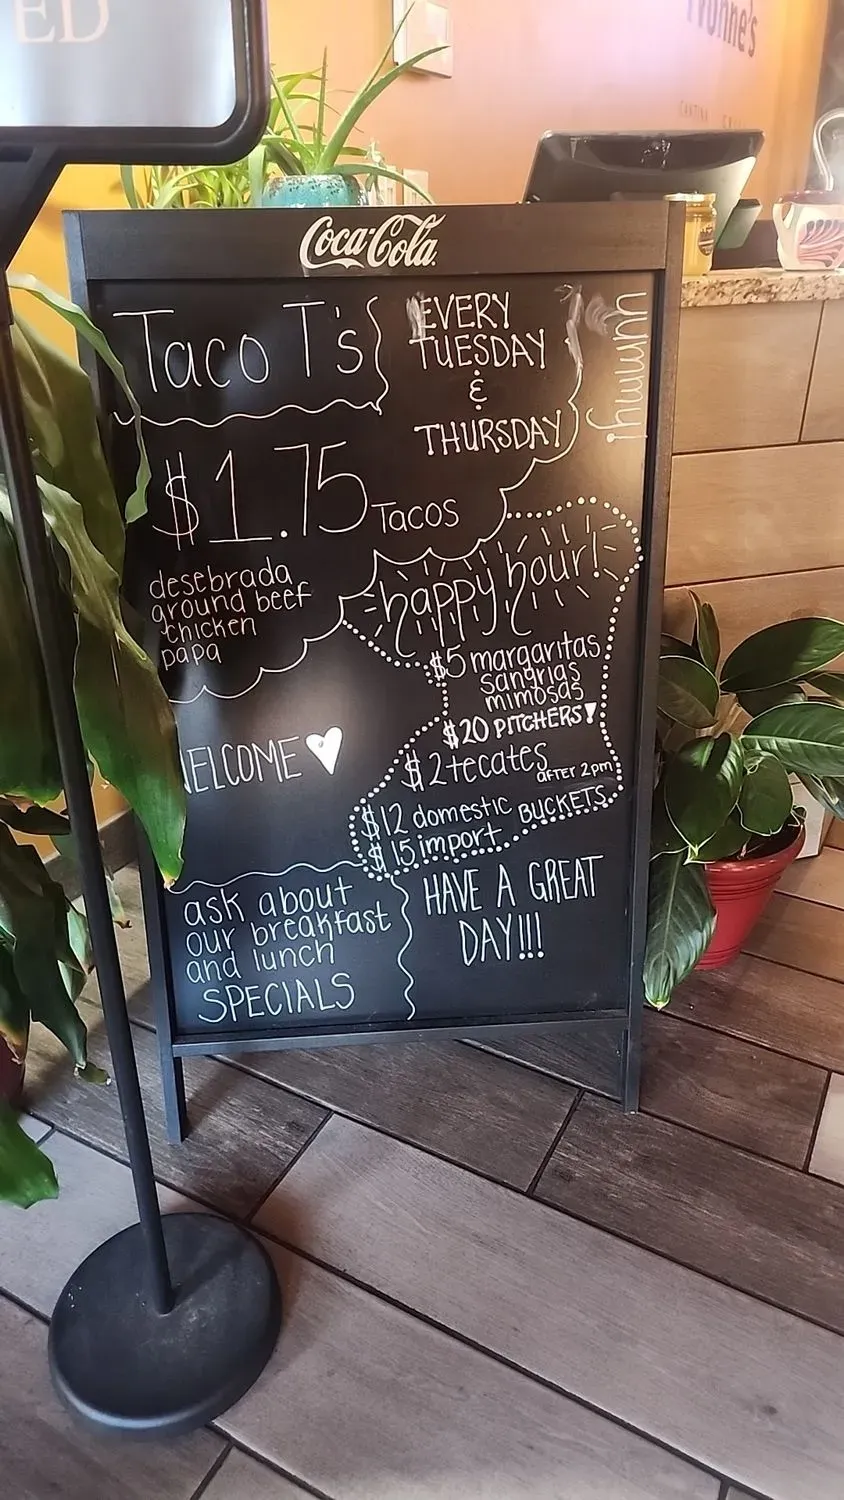 ED
Yvonne's
Coca-Cola
Taco T's
EVERY
TUESDAY
&
THURSDAY
$1.75 Tacos
desebrada
ground beef
chicken
papa
happy hour!
$5 margaritas
sangrias
mimosas
$20 PITCHERS!
$2 tecates
AFTER 2pm
$12 domestic
$15 import BUCKETS
WELCOME
ask about
our breakfast
and lunch
SPECIALS
HAVE A GREAT
DAY!!!